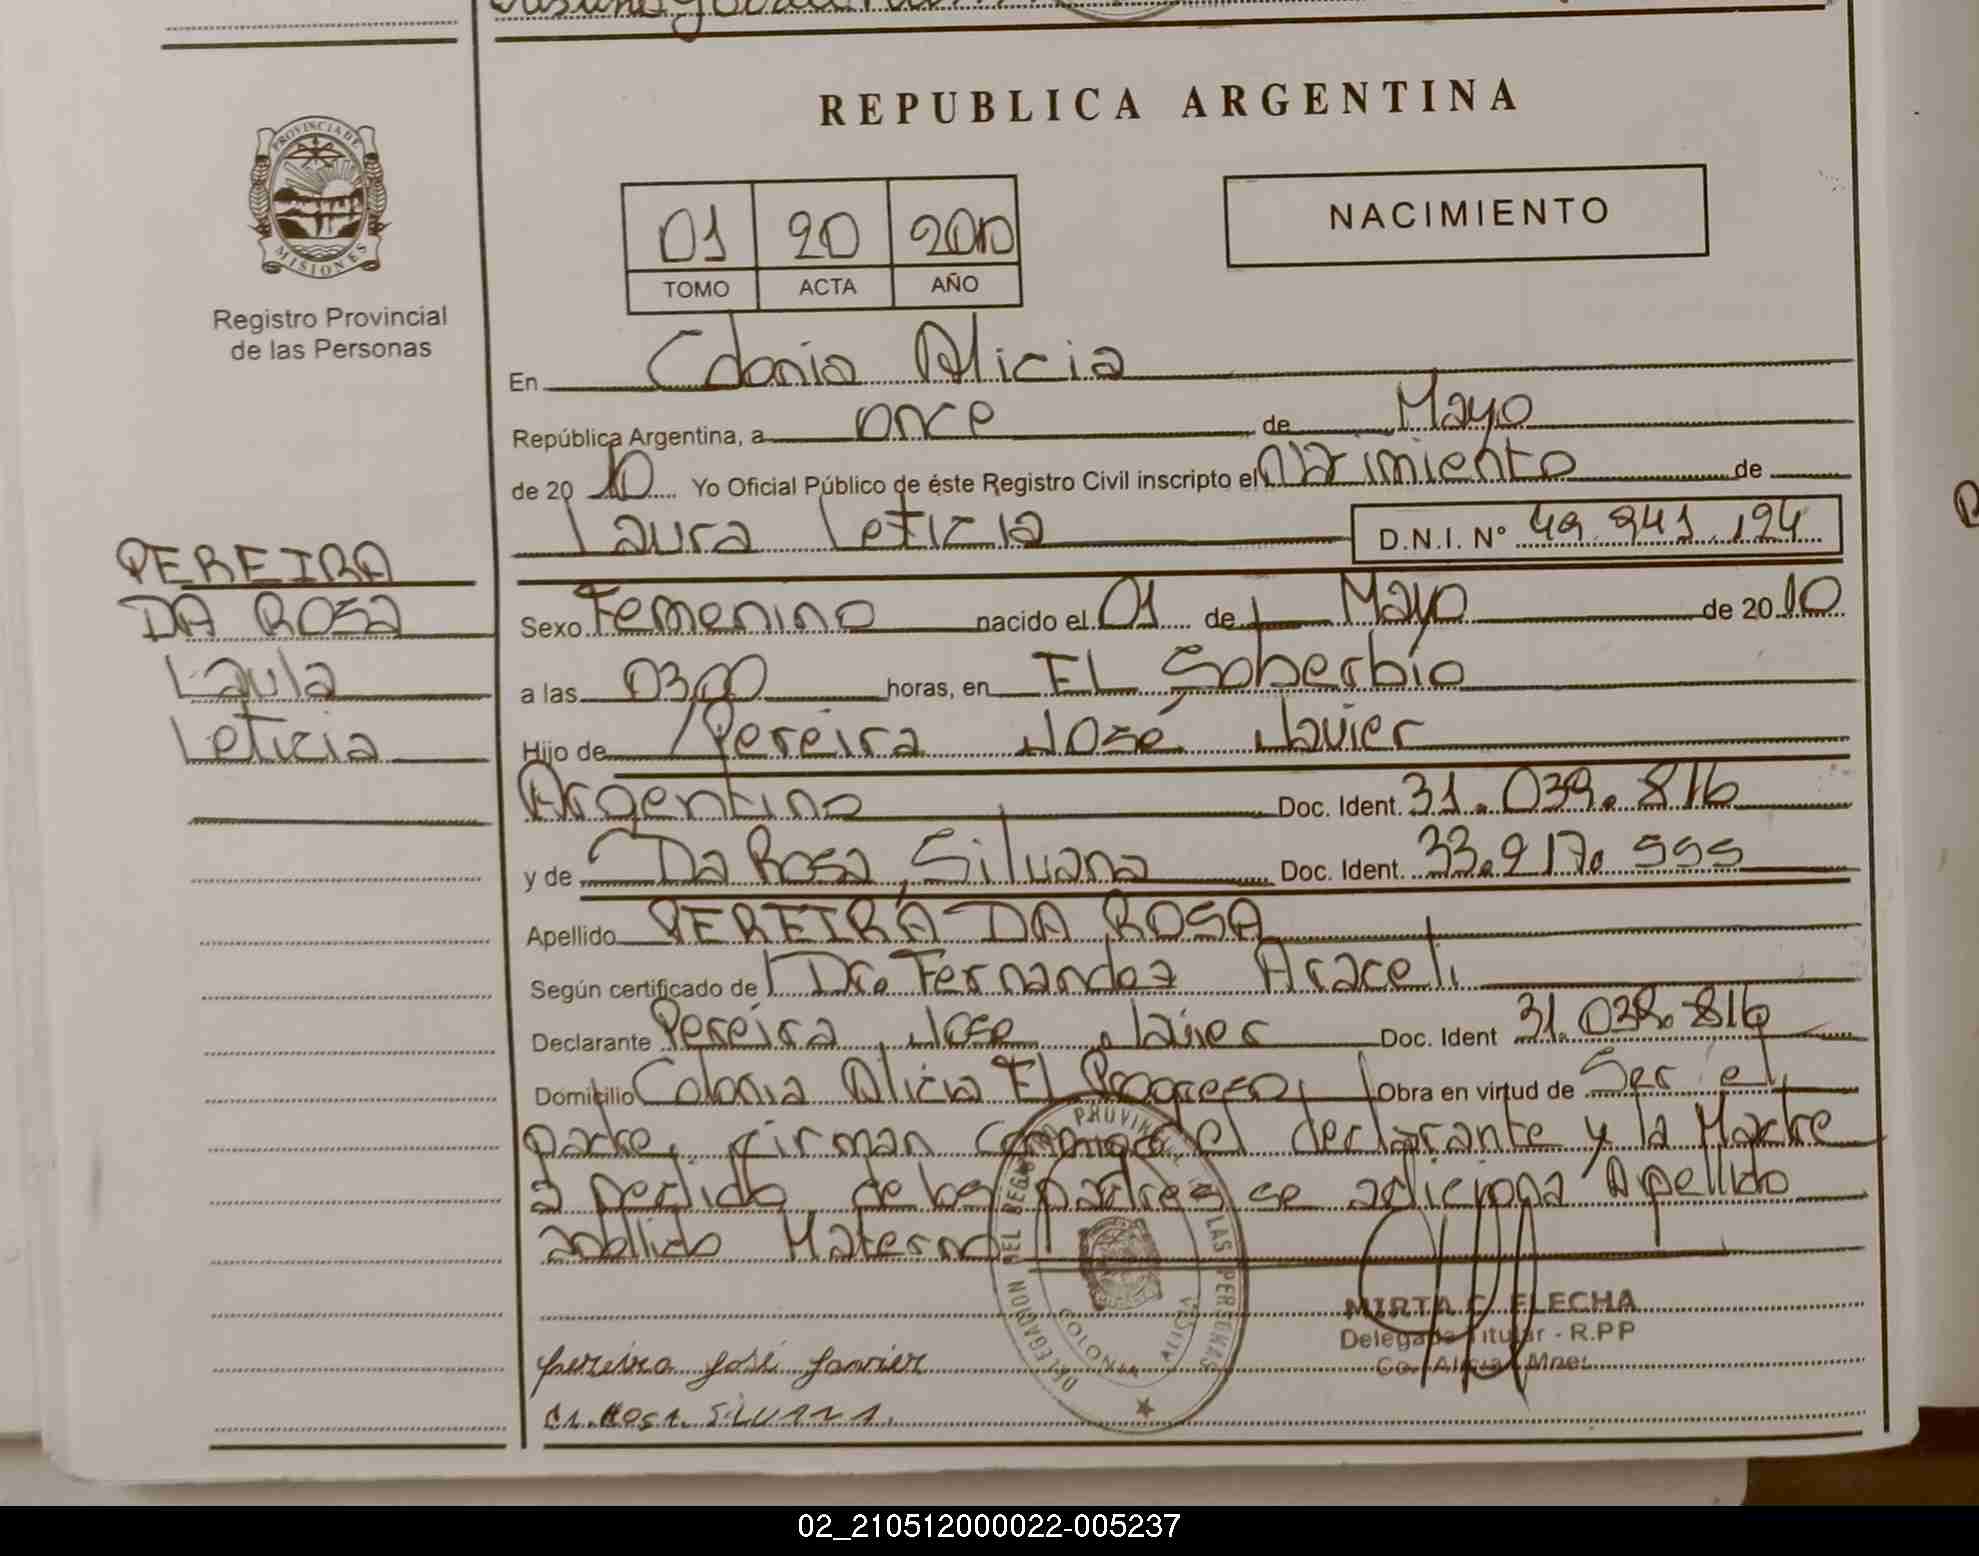 REPUBLICA ARGENTINA
PROVINCIA DE
MISIONES
Registro Provincial
de las Personas
NACIMIENTO
01 20 2010
TOMO ACTA AÑO
En Colonia Alicia
República Argentina, a once de Mayo
de 20 10 Yo Oficial Público de éste Registro Civil inscripto el Nacimiento de
Laura Leticia D.N.I. Nº 49.941.124
PEREIRA
DA ROSA
Laula
Leticia
Sexo Femenino nacido el 01 de Mayo de 20 10
a las 03,00 horas, en El Soberbio
Hijo de Pereira José Javier
Argentino Doc. Ident. 31.039.816
y de Da Rosa, Silvana Doc. Ident. 33.917.999
Apellido PEREIRA DA ROSA
Según certificado de Dra. Fernandez Araceli
Declarante Pereira Jose Javier Doc. Ident 31.039.816
Domicilio Colonia Alicia El Progreso Obra en virtud de Ser el
padre, firman conmigo el declarante y la Madre
a pedido de los padres se adiciona Apellido
Materno
DELEGACION DEL REGISTRO PROVINCIAL DE LAS PERSONAS
COLONIA ALICIA
MIRTA C. FLECHA
Delegada Titular - R.P.P
Col. Alicia Mnes.
Pereira José Javier
Da Rosa Silvana
02_210512000022-005237